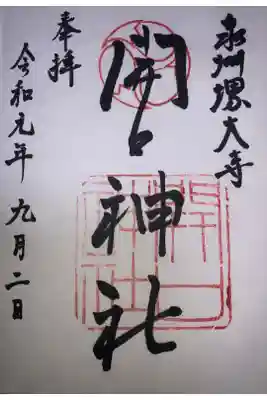 泉州堺大寺
開口神社
奉拝
令和元年九月二日
開口
神社